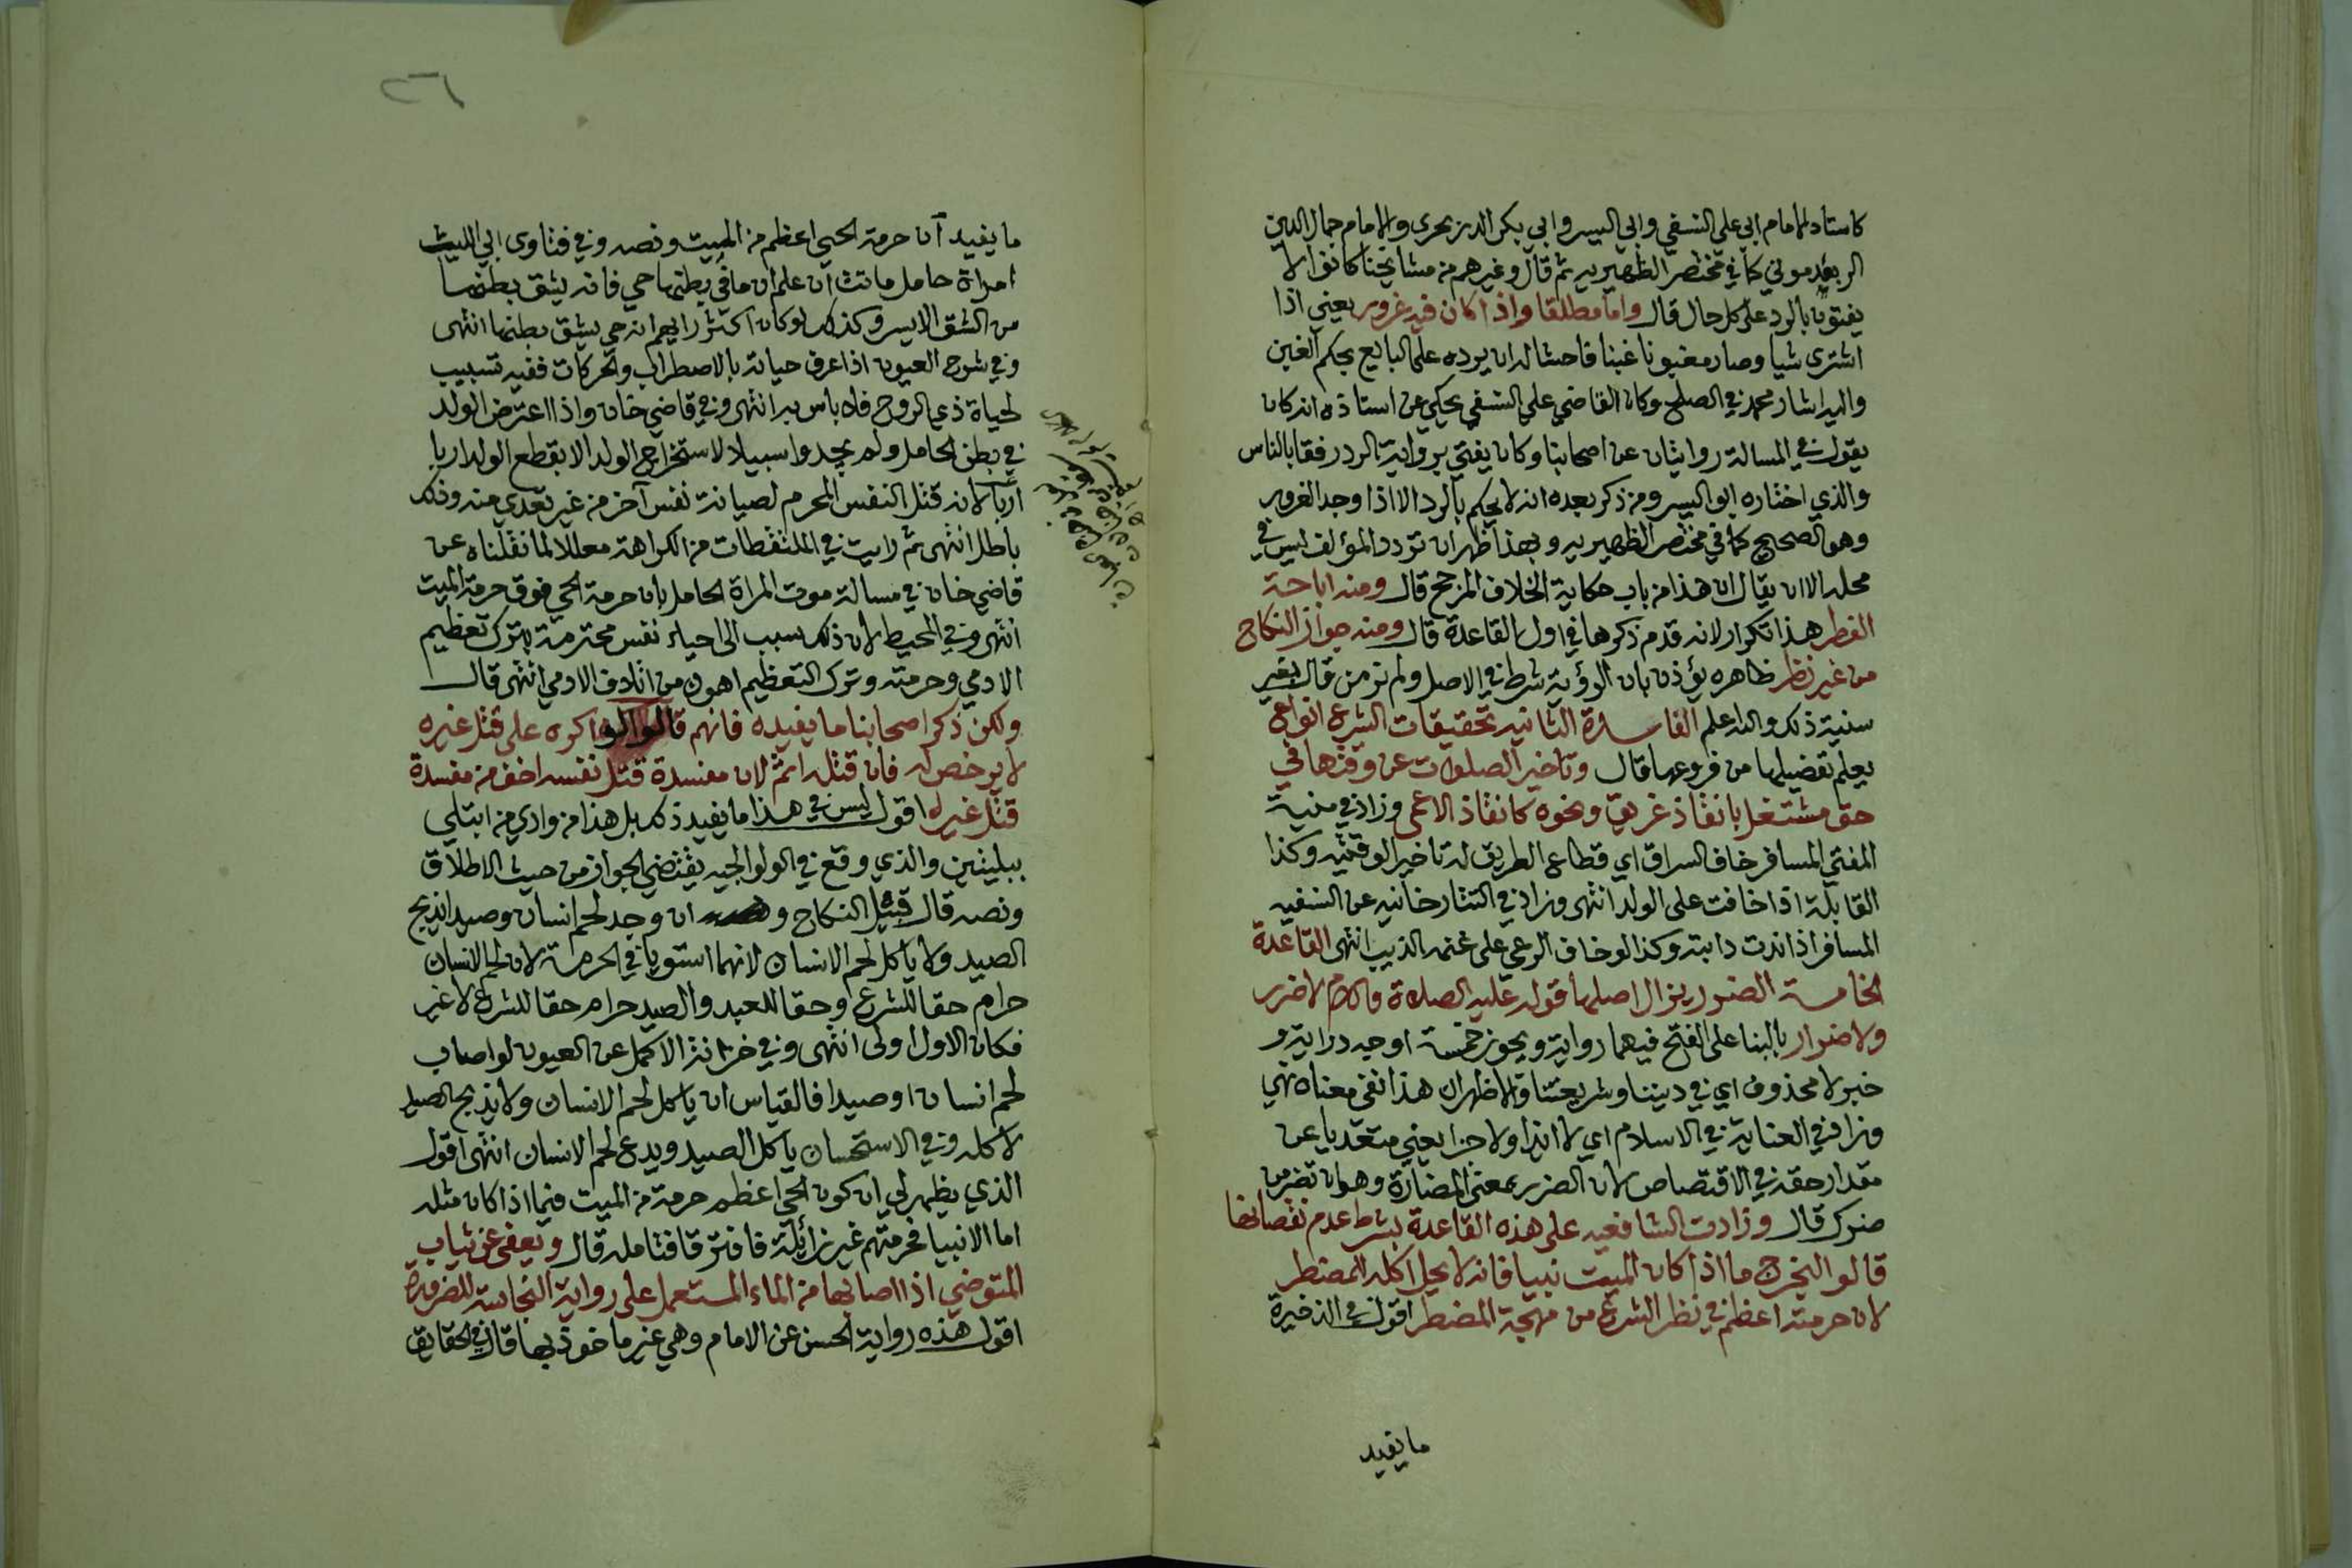 كاستاد الامام ابي علي النسفي وابي اليسر وابي بكر الزرنجري والامام جمال الدين
كما في مختصر الظهيريه ثم قال وغيرهم من مشايخنا كانوا لا
يفتون بالرد على كل حال قال واما مطلقا واذا كان فيه غرور يعني اذا
اشترى شيا وصار مغبونا غبنا فاحشا له ان يرده على البايع بحكم الغبن
واليه اشار محمد في الصلح وكان القاضي علي النسفي يحكي عن استاذه انه كان
يقول في المسالة روايتان عن اصحابنا وكان يفتي برواية الرد رفقا بالناس
والذي اختاره ابو اليسر ومن ذكر بعده انه لا يحكم بالرد الا اذا وجد الغرور
وهو الصحيح كما في مختصر الظهيريه وبهذا ظهر ان تردد المؤلف ليس في
محله الا ان يقال ان هذا من باب حكاية الخلاف المرجح قال ومنه اباحة
الفطر هذا تكرار لانه قدم ذكرها في اول القاعدة قال ومنه جواز النكاح
من غير نظر ظاهره يؤذن بان الرؤية شرط في الاصل ولم نر من قال بغير
سنية ذلك والله اعلم الفايدة الثانيه تحقيقات الشرع انواع
يعلم تفصيلها من فروعها قال وتاخير الصلوات عن وقتها في
حق مشتغل بانقاذ غريق ونحوه كانقاذ الاعمى وزاد في منية
المفتي المسافر خاف السراق اي قطاع الطريق له تاخير الوقتيه وكذا
القابلة اذا خافت على الولد انتهى وزاد في التتارخانيه عن النسفيه
المسافر اذا ندت دابته وكذا لو خاف الرعي على غنمه الذيب انتهى القاعدة
الخامسة الضرر يزال اصلها قوله عليه الصلاة والسلام لا ضرر
ولا ضرار بالبنا على الفتح فيهما رواية ويجوز خمسة اوجه دراية و
خبر لا محذوف اي في ديننا وشريعتنا والاظهر ان هذا نفي معناه نهي
وزاد في العناية في الاسلام اي لا ابتدا ولا جزا يعني متعديا عن
مقدار حقه في الاقتصاص لان الضرر بمعنى المضارة وهو ان تضر من
ضرك قال وزادت الشافعيه على هذه القاعدة بشرط عدم نقصانها
قالوا ليخرج ما اذا كان الميت نبيا فانه لا يحل اكله للمضطر
لان حرمته اعظم في نظر الشرع من مهجة المضطر اقول في الذخيرة
ما يفيد
٢٦١
ما يفيد ان حرمة الحي اعظم من الميت ونصه وفي فتاوى ابي الليث
امراة حامل ماتت ان علم ان ما في بطنها حي فانه يشق بطنها
من الشق الايسر وكذلك لو كان اكثر رايهم انه حي يشق بطنها انتهى
وفي شرح العيون اذا عرف حياته بالاصطراب والحركات ففيه تسبيب
لحياة ذي الروح فلا باس به انتهى وفي قاضي خان واذا اعترض الولد
في بطن الحامل ولم يجدوا سبيلا لاستخراج الولد الا بقطع الولد اربا
اربا لانه قتل النفس المحرم لصيانة نفس آخر من غير تعدي منه وذلك
باطل انتهى ثم رايت في الملتقطات من الكراهة معللا لما نقلناه عن
قاضي خان في مسالة موت المراة الحامل بان حرمة الحي فوق حرمة الميت
انتهى وفي المحيط لان ذلك سبب الى احياء نفس محترمة بترك تعظيم
الادمي وحرمته وترك التعظيم اهون من اتلاف الادمي انتهى قال
ولكن ذكر اصحابنا ما يفيده فانهم قالوا لو اكره على قتل غيره
لا يرخص له فان قتله اثم لان مفسدة قتل نفسه اخف من مفسدة
قتل غيره اقول ليس في هذا ما يفيد ذلك بل هذا من وادي من ابتلي
ببليتين والذي وقع في الولوالجيه يقتضي الجواز من حيث الاطلاق
ونصه قال قبيل النكاح و ان وجد لحم انسان وصيدا يذبح
الصيد ولا ياكل لحم الانسان لانهما استويا في الحرمة لان لحم الانسان
حرام حقا للشرع وحقا للعبد والصيد حرام حقا للشرع لا غير
فكان الاول اولى انتهى وفي خزانة الاكمل عن العيون لو اصاب
لحم انسان او صيدا فالقياس ان ياكل لحم الانسان ولا يذبح الصيد
لاكله وفي الاستحسان ياكل الصيد ويدع لحم الانسان انتهى اقول
الذي يظهر لي ان كون الحي اعظم حرمة من الميت فيما اذا كان مثله
اما الانبيا فحرمتهم غير زائلة فافترقا فتامله قال ويعفى عن ثياب
المتوضي اذا اصابها من الماء المستعمل على رواية النجاسة للضرورة
اقول هذه رواية الحسن عن الامام وهي غير ماخوذ بها قال في الحقايق